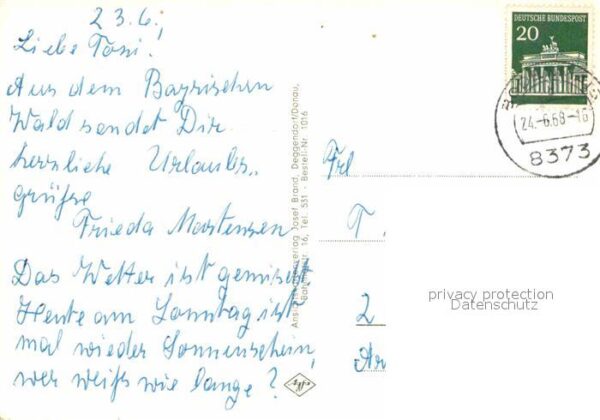 23.6.
Liebe Toni!
Aus dem Bayrischen
Wald sendet Dir
herzliche Urlaubs-
grüße
Frieda Martensen
Das Wetter ist gemischt.
Heute am Sonntag ist
mal wieder Sonnenschein,
wer weiß wie lange?
Ansichtskartenverlag Josef Brand, Deggendorf/Donau,
Bahnhofstr. 16, Tel. 531 - Bestell-Nr. 1016
DEUTSCHE BUNDESPOST
20
24.-6.68-16
8373
Frl
T
2
privacy protection
Datenschutz